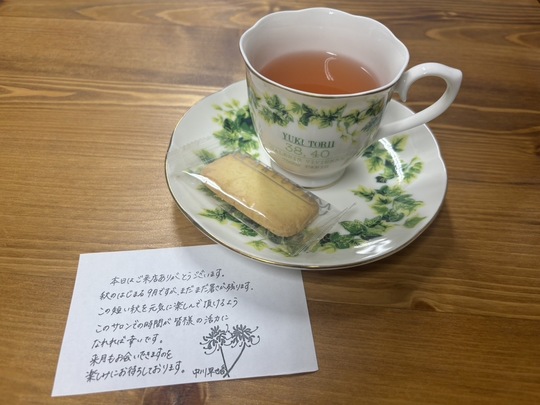 YUKI TORII
38 40
本日はご来店ありがとうございます。
秋のはじまる9月ですが、まだまだ暑さが残ります。
この短い秋を元気に楽しんで頂けるよう
このサロンでの時間が皆様の活力に
なれれば幸いです。
来月もお会いできますのを
楽しみにお待ちしております。
中川早